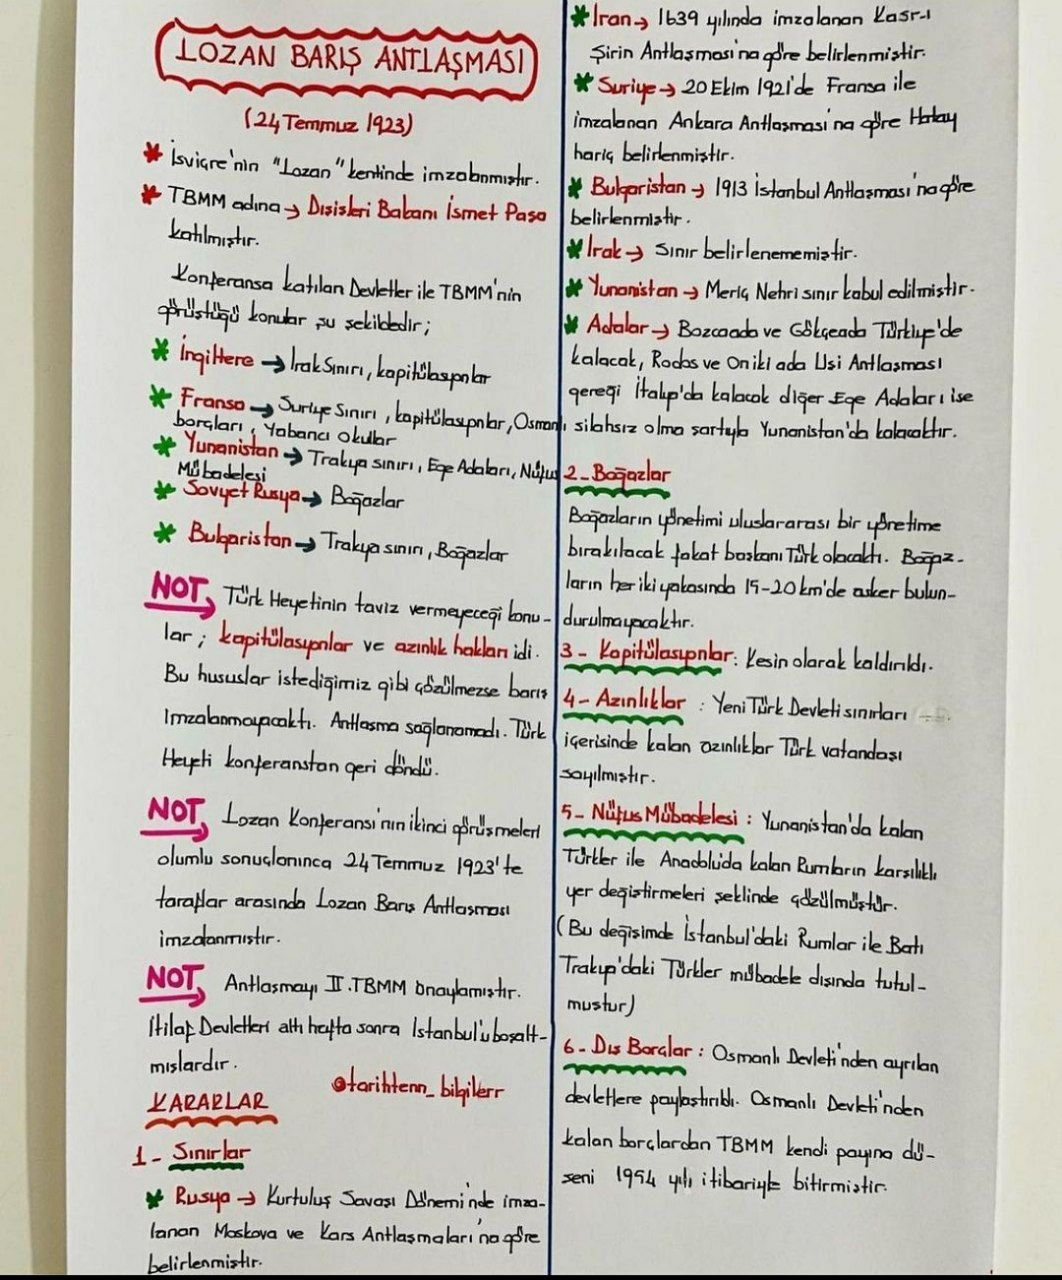 LOZAN BARIŞ ANTLAŞMASI
(24 Temmuz 1923)
* İsviçre'nin "Lozan" kentinde imzalanmıştır.
* TBMM adına → Dışişleri Bakanı İsmet Paşa
katılmıştır.
Konferansa katılan Devletler ile TBMM'nin
görüştüğü konular şu şekildedir;
* İngiltere → Irak Sınırı, kapitülasyonlar
* Fransa → Suriye Sınırı, kapitülasyonlar, Osmanlı
borçları, Yabancı okullar
* Yunanistan → Trakya sınırı, Ege Adaları, Nüfus
Mübadelesi
* Sovyet Rusya → Boğazlar
* Bulgaristan → Trakya sınırı, Boğazlar
NOT, Türk Heyetinin taviz vermeyeceği konu-
lar; kapitülasyonlar ve azınlık hakları idi.
Bu hususlar istediğimiz gibi çözülmezse barış
imzalanmayacaktı. Antlaşma sağlanamadı. Türk
Heyeti konferanstan geri döndü.
NOT, Lozan Konferansı'nın ikinci görüşmeleri
olumlu sonuçlanınca 24 Temmuz 1923'te
taraflar arasında Lozan Barış Antlaşması
imzalanmıştır.
NOT, Antlaşmayı II. TBMM onaylamıştır.
İtilaf Devletleri altı hafta sonra İstanbul'u boşalt-
mışlardır.
@tarihtenn_bilgilerr
KARARLAR
1- Sınırlar
* Rusya → Kurtuluş Savaşı Dönemi'nde imza-
lanan Moskova ve Kars Antlaşmaları'na göre
belirlenmiştir.
* İran → 1639 yılında imzalanan Kasr-ı
Şirin Antlaşması'na göre belirlenmiştir.
* Suriye → 20 Ekim 1921'de Fransa ile
imzalanan Ankara Antlaşması'na göre Hatay
hariç belirlenmiştir.
* Bulgaristan → 1913 İstanbul Antlaşması'na göre
belirlenmiştir.
* Irak → Sınır belirlenememiştir.
* Yunanistan → Meriç Nehri sınır kabul edilmiştir.
* Adalar → Bozcaada ve Gökçeada Türkiye'de
kalacak, Rodos ve On iki ada Uşi Antlaşması
gereği İtalya'da kalacak diğer Ege Adaları ise
silahsız olma şartıyla Yunanistan'da kalacaktır.
2- Boğazlar
Boğazların yönetimi uluslararası bir yönetime
bırakılacak fakat başkanı Türk olacaktı. Boğaz-
ların her iki yakasında 15-20 km'de asker bulun-
durulmayacaktır.
3- Kapitülasyonlar: Kesin olarak kaldırıldı.
4- Azınlıklar : Yeni Türk Devleti sınırları
içerisinde kalan azınlıklar Türk vatandaşı
sayılmıştır.
5- Nüfus Mübadelesi : Yunanistan'da kalan
Türkler ile Anadolu'da kalan Rumların karşılıklı
yer değiştirmeleri şeklinde çözülmüştür.
(Bu değişimde İstanbul'daki Rumlar ile Batı
Trakya'daki Türkler mübadele dışında tutul-
muştur)
6- Dış Borçlar : Osmanlı Devleti'nden ayrılan
devletlere paylaştırıldı. Osmanlı Devleti'nden
kalan borçlardan TBMM kendi payına dü-
şeni 1954 yılı itibariyle bitirmiştir.